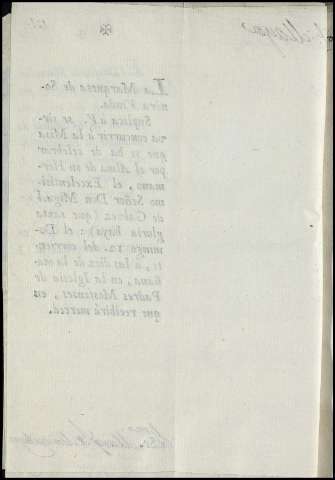 La Marquesa de So-
nora Viuda.
Suplica à V. se sir-
va concurrir à la Misa
que se ha de celebrar
por el Alma de su Her-
mano, el Excelentisi-
mo Señor Don Miguèl
de Galvez (que santa
gloria haya): el Do-
mingo
del corrien-
te, à las diez de la ma-
ñana, en la Iglesia de
Padres Mostenses, en
que recibirá merced.